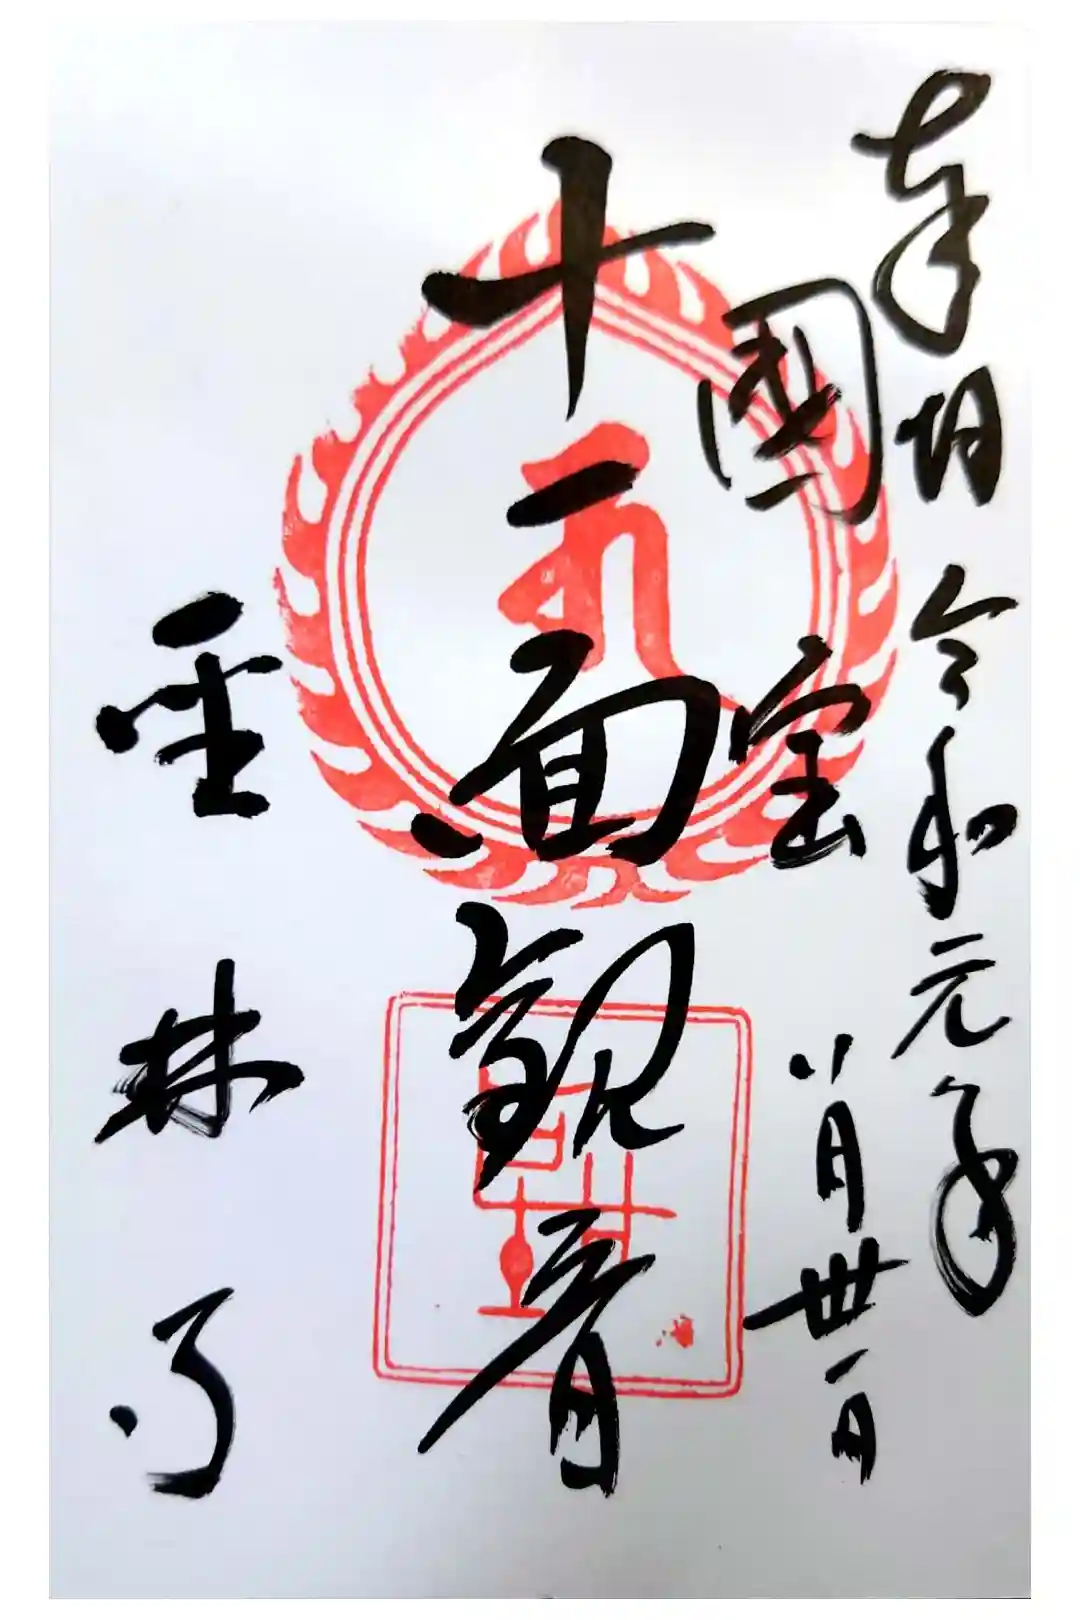 奉拝 令和元年
國宝 八月卅一日
十一面観音
聖林寺